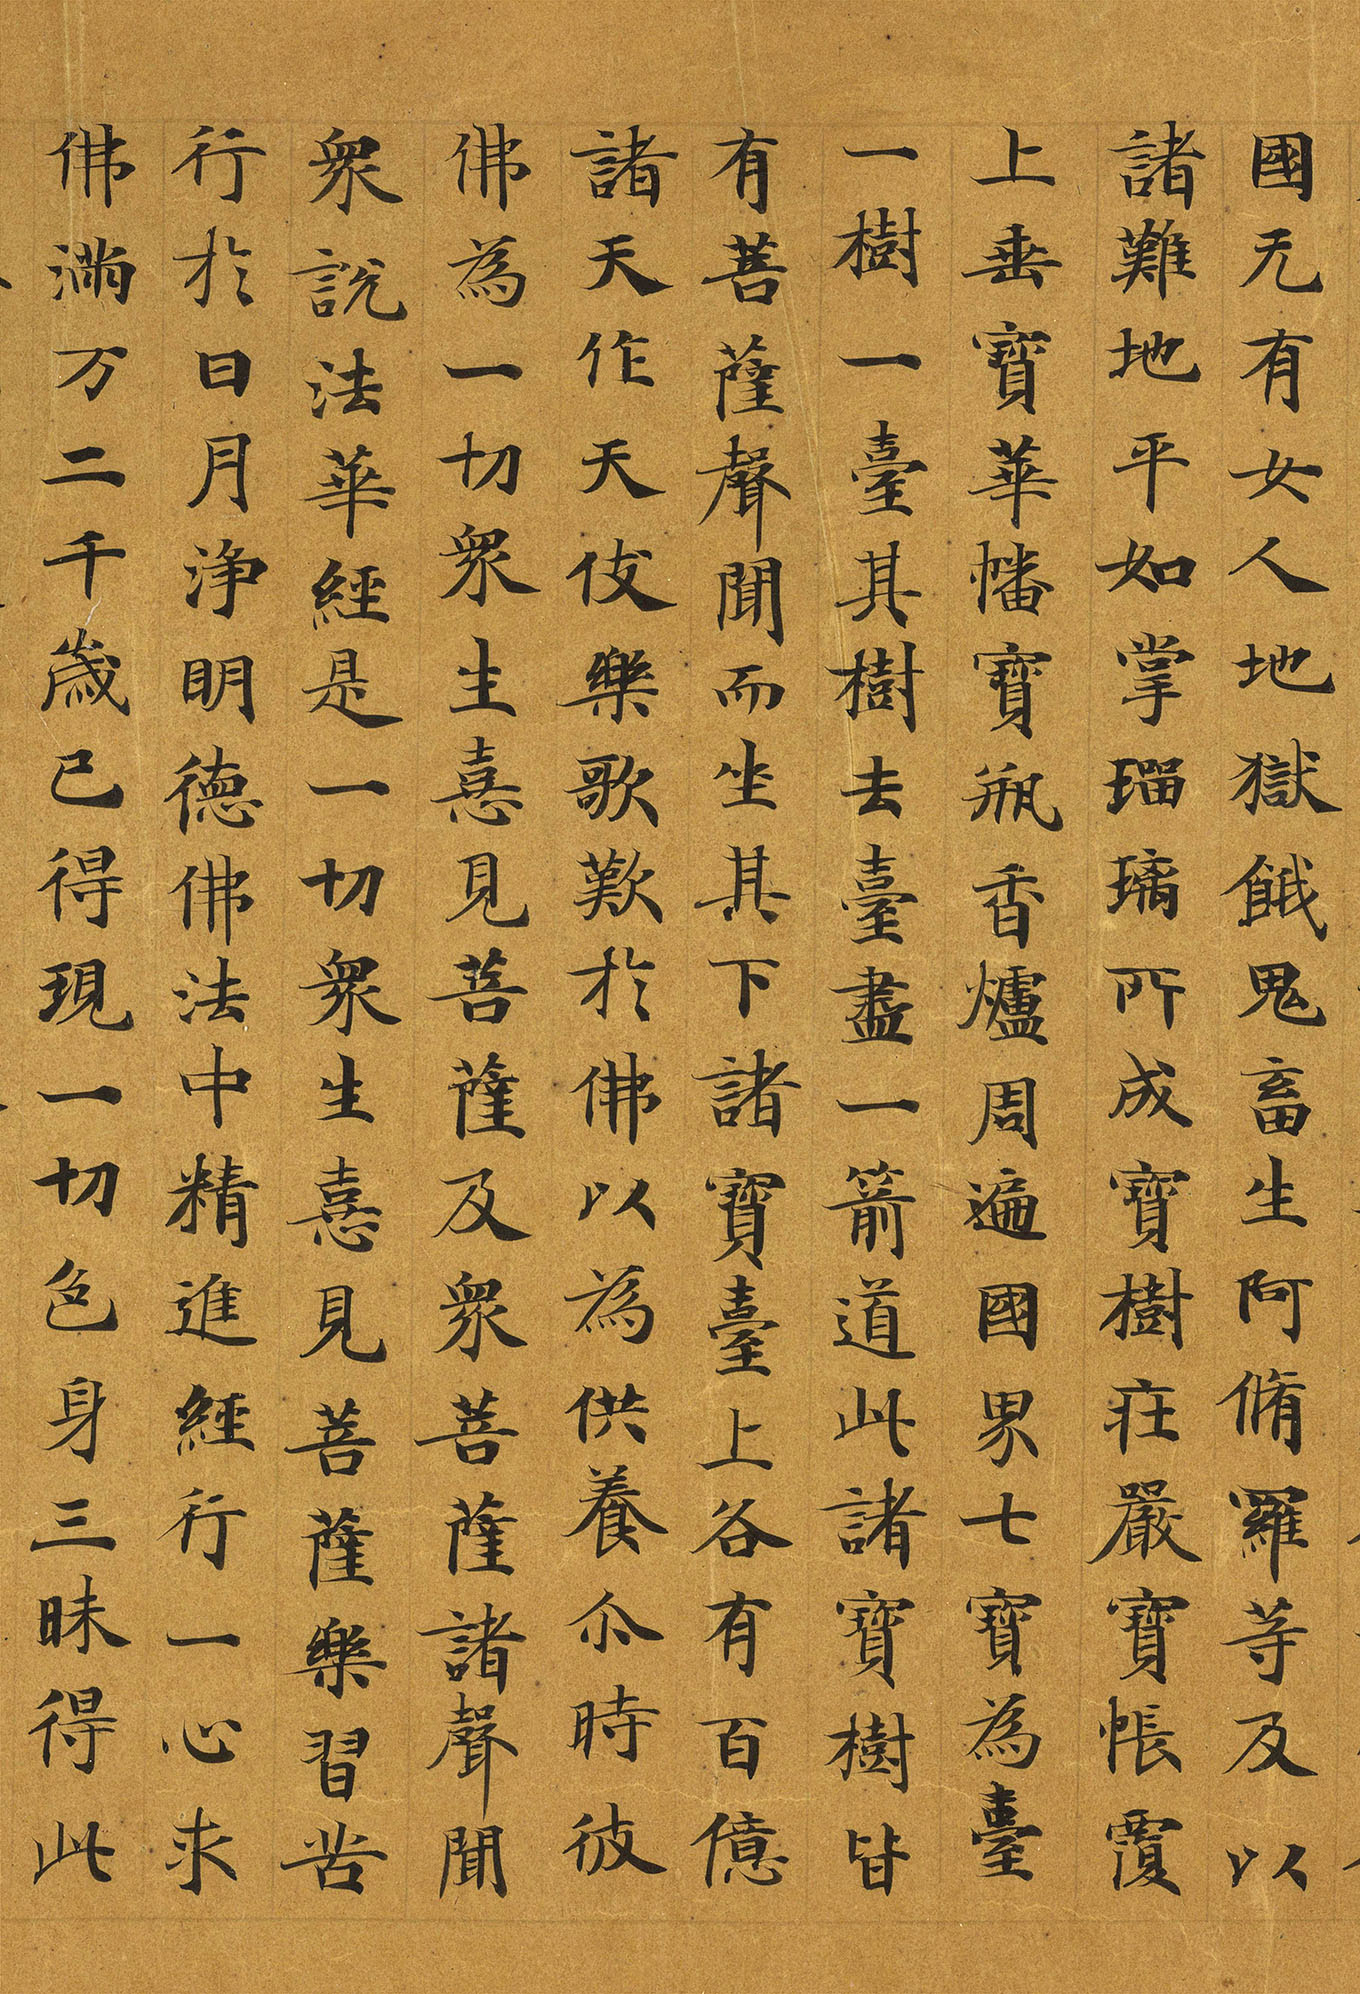 國无有女人地獄餓鬼畜生阿脩羅等及以
諸難地平如掌瑠璃所成寶樹莊嚴寶帳覆
上垂寶華幡寶瓶香爐周遍國界七寶為臺
一樹一臺其樹去臺盡一箭道此諸寶樹皆
有菩薩聲聞而坐其下諸寶臺上各有百億
諸天作天伎樂歌歎於佛以為供養尒時彼
佛為一切衆生憙見菩薩及衆菩薩諸聲聞
衆說法華經是一切衆生憙見菩薩樂習苦
行於日月淨明德佛法中精進經行一心求
佛滿万二千歲已得現一切色身三昧得此